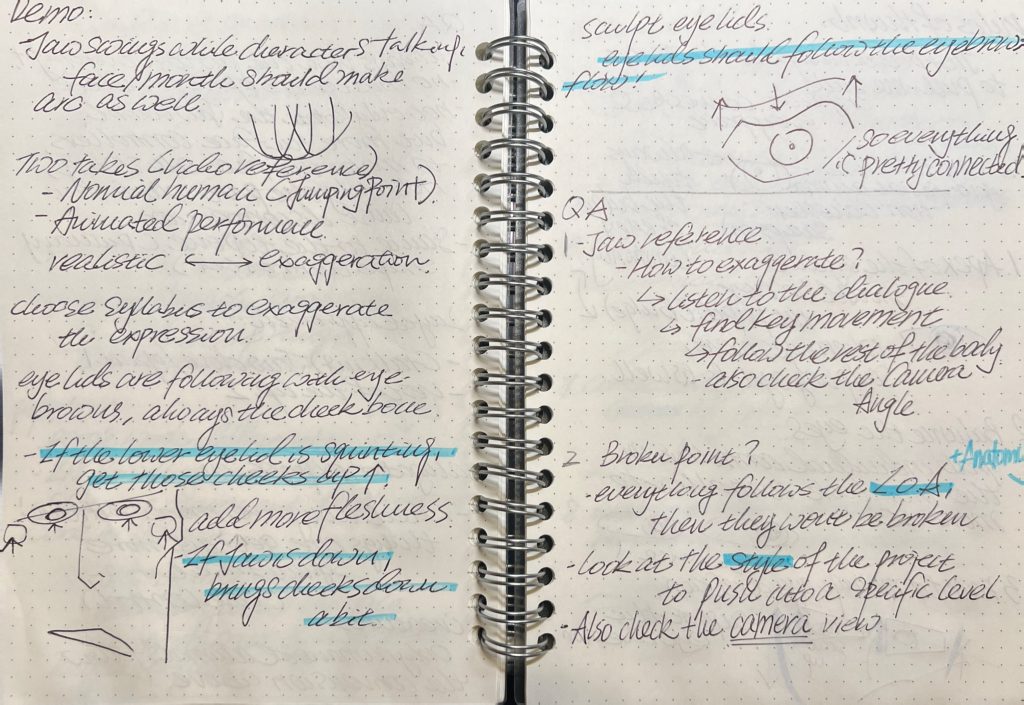 Demo:
- Jaw swings while characters talking,
face/mouth should make
arc as well.
Two takes (video reference)
- Normal human (Jumping Point).
- Animated performance.
realistic ⟷ exaggeration.
choose syllabus to exaggerate
the expression.
eye lids are following with eye-
brows, always the cheek bone.
- If the lower eyelid is squinting,
get those cheeks up ↑
add more fleshiness
- If Jaw is down,
brings cheeks down
a bit.
sculpt eye lids.
eye lids should follow the eyebrows
flow!
so everything
is pretty connected
QA
1 - Jaw reference
- How to exaggerate?
↳ listen to the dialogue.
↳ find key movement
↳ follow the rest of the body
- also check the Camera
Angle.
2. Broken point?
+Anatomi
- everything follows the LOA,
then they wont be broken
- Look at the style of the project
to push into a specific level.
- Also check the camera view.